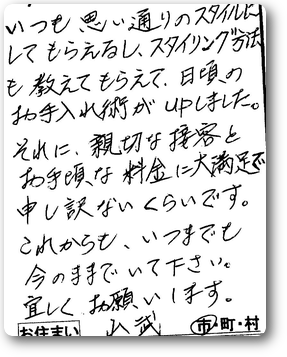 いつも思い通りのスタイルに
してもらえるし、スタイリング方法
も教えてもらえて、日頃の
お手入れ術がUPしました。
それに、親切な接客と
お手頃な料金に大満足で
申し訳ないくらいです。
これからも、いつまでも
今のままでいて下さい。
宜しくお願いします。
お住まい 山武 市・町・村